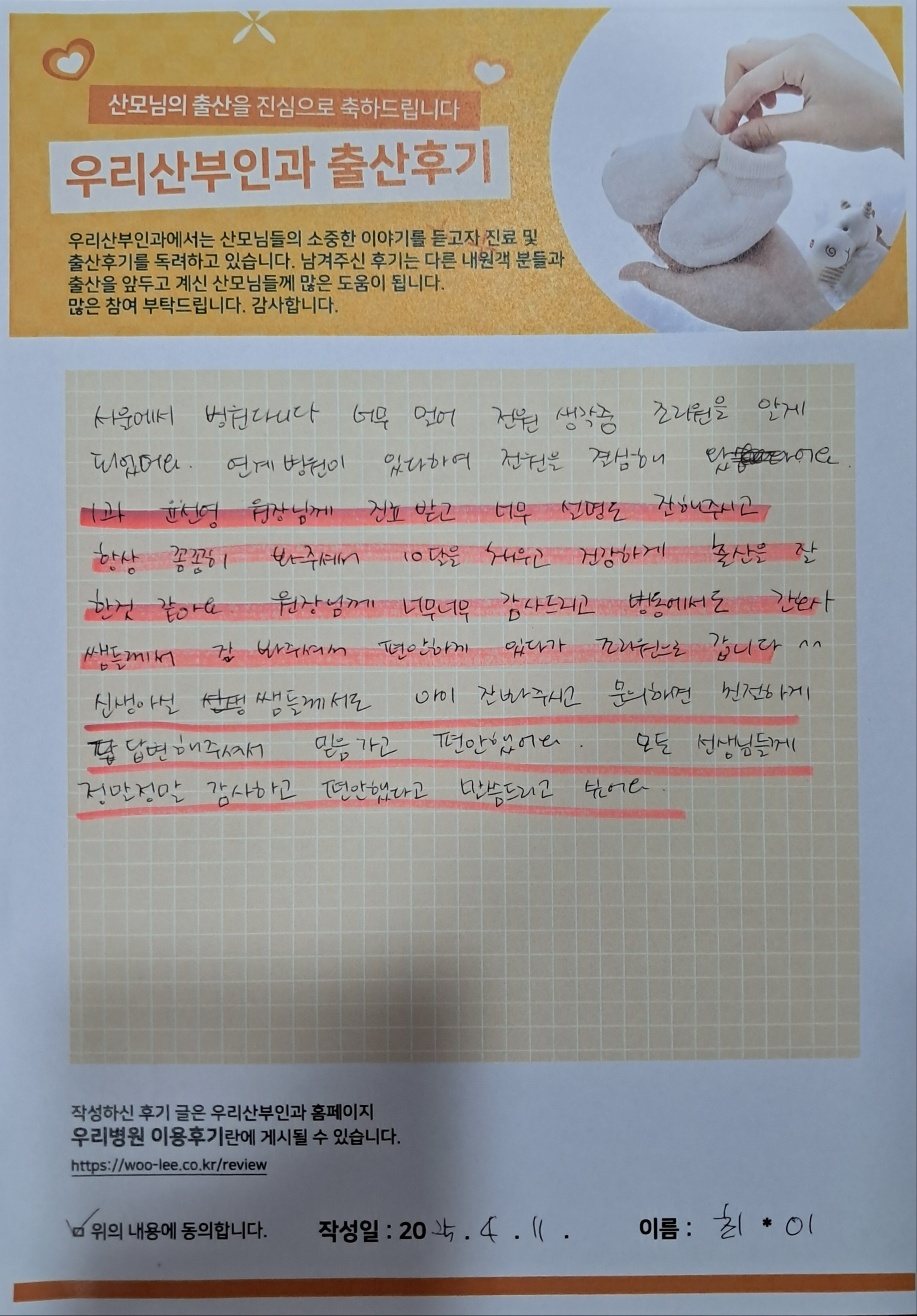 산모님의 출산을 진심으로 축하드립니다
우리산부인과 출산후기
우리산부인과에서는 산모님들의 소중한 이야기를 듣고자 진료 및
출산후기를 독려하고 있습니다. 남겨주신 후기는 다른 내원객 분들과
출산을 앞두고 계신 산모님들께 많은 도움이 됩니다.
많은 참여 부탁드립니다. 감사합니다.
서울에서 병원다니다 너무 멀어 전원 생각중 조리원을 알게
되었어요. 연계병원이 있다하여 전원을 결심해 왔어요.
1과 윤선영 원장님께 진료 받고 너무 설명도 잘해주시고
항상 꼼꼼히 봐주셔서 10달을 채우고 건강하게 출산을 잘
한것 같아요. 원장님께 너무너무 감사드리고 병동에서도 간호사
쌤들께서 잘 봐주셔서 편안하게 있다가 조리원으로 갑니다 ^^
신생아실 쌤들께서도 아이 잘봐주시고 문의하면 친절하게
답변해주셔서 믿음가고 편안했어요. 모든 선생님들께
정말정말 감사하고 편안했다고 말씀드리고 싶어요.
작성하신 후기 글은 우리산부인과 홈페이지
우리병원 이용후기란에 게시될 수 있습니다.
https://woo-lee.co.kr/review
위의 내용에 동의합니다. 작성일 : 2025.4.11. 이름 : 최*이